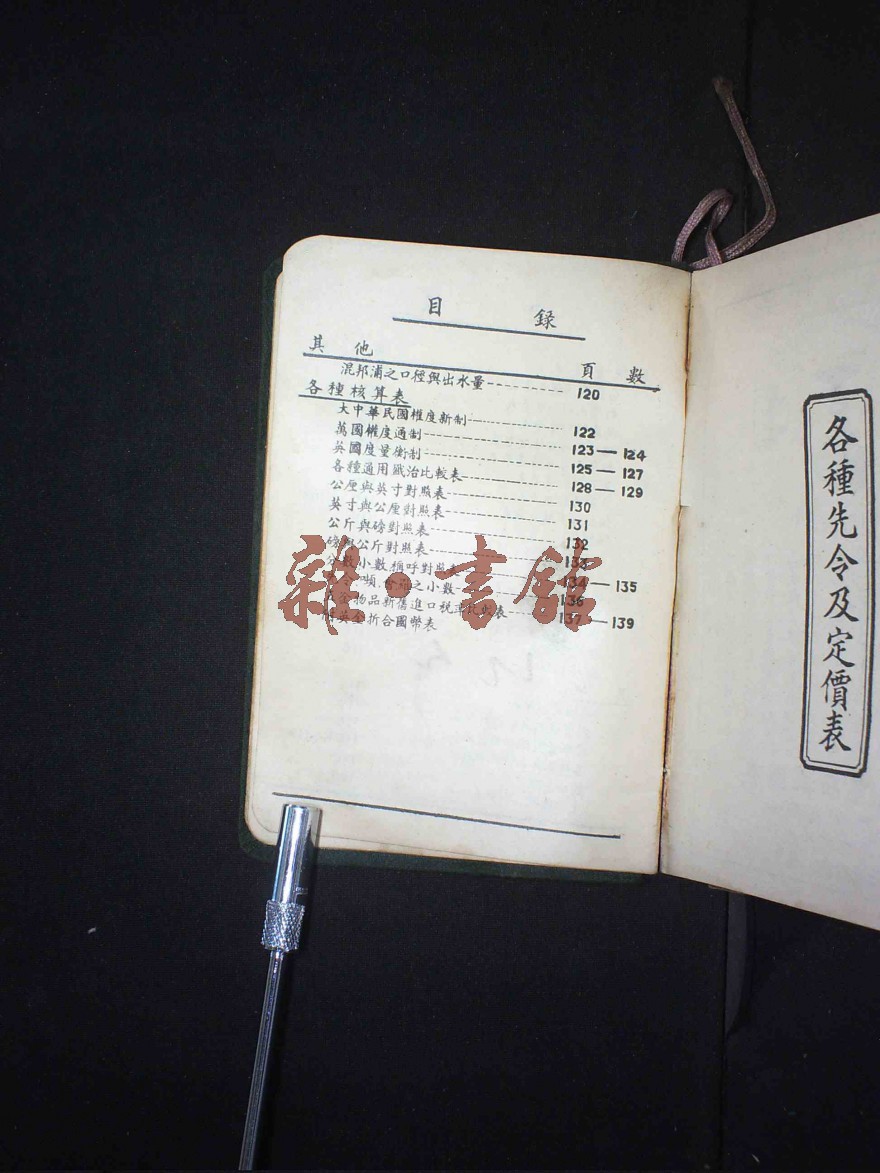 目錄
其他 頁數
混邦浦之口徑與出水量 120
各種核算表
大中華民國權度新制 122
萬國權度通制 123—124
英國度量衡制 125—127
各種通用 比較表 128—129
公厘與英寸對照表 130
英寸與公厘對照表 131
公斤與磅對照表 132
磅與公斤對照表 133
分數小數稱呼對照表 134—135
之小數 136
物品新舊進口稅 表 137—139
英金折合國幣表
雜·書館
各種先令及定價表